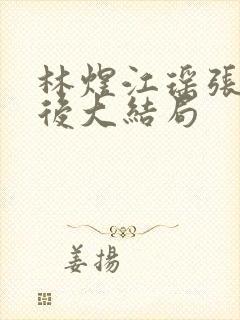 林煜江瑶張
後大結局
姜揚